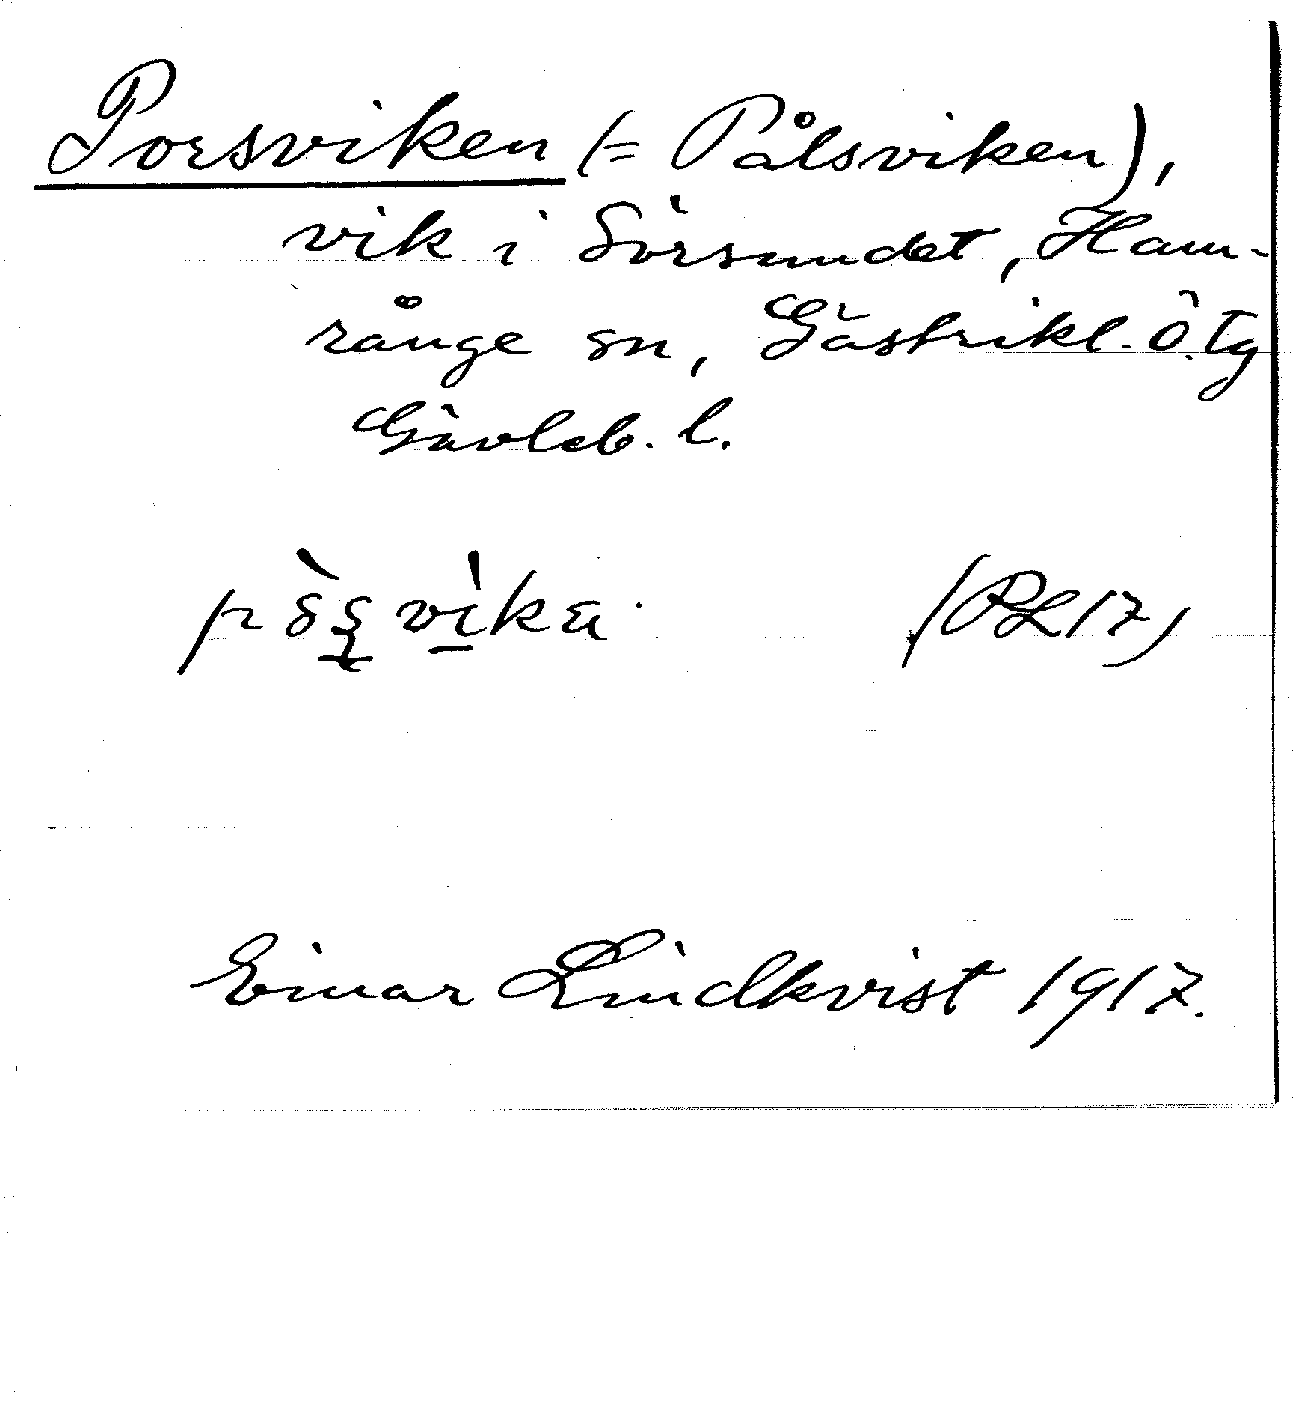 Porsviken (= Pålsviken),
vik i Sörsundet, Ham-
rånge sn, Gästrikl. Ö. Tg
Gävleb. l.
(PL 17)
Einar Lindkvist 1917.